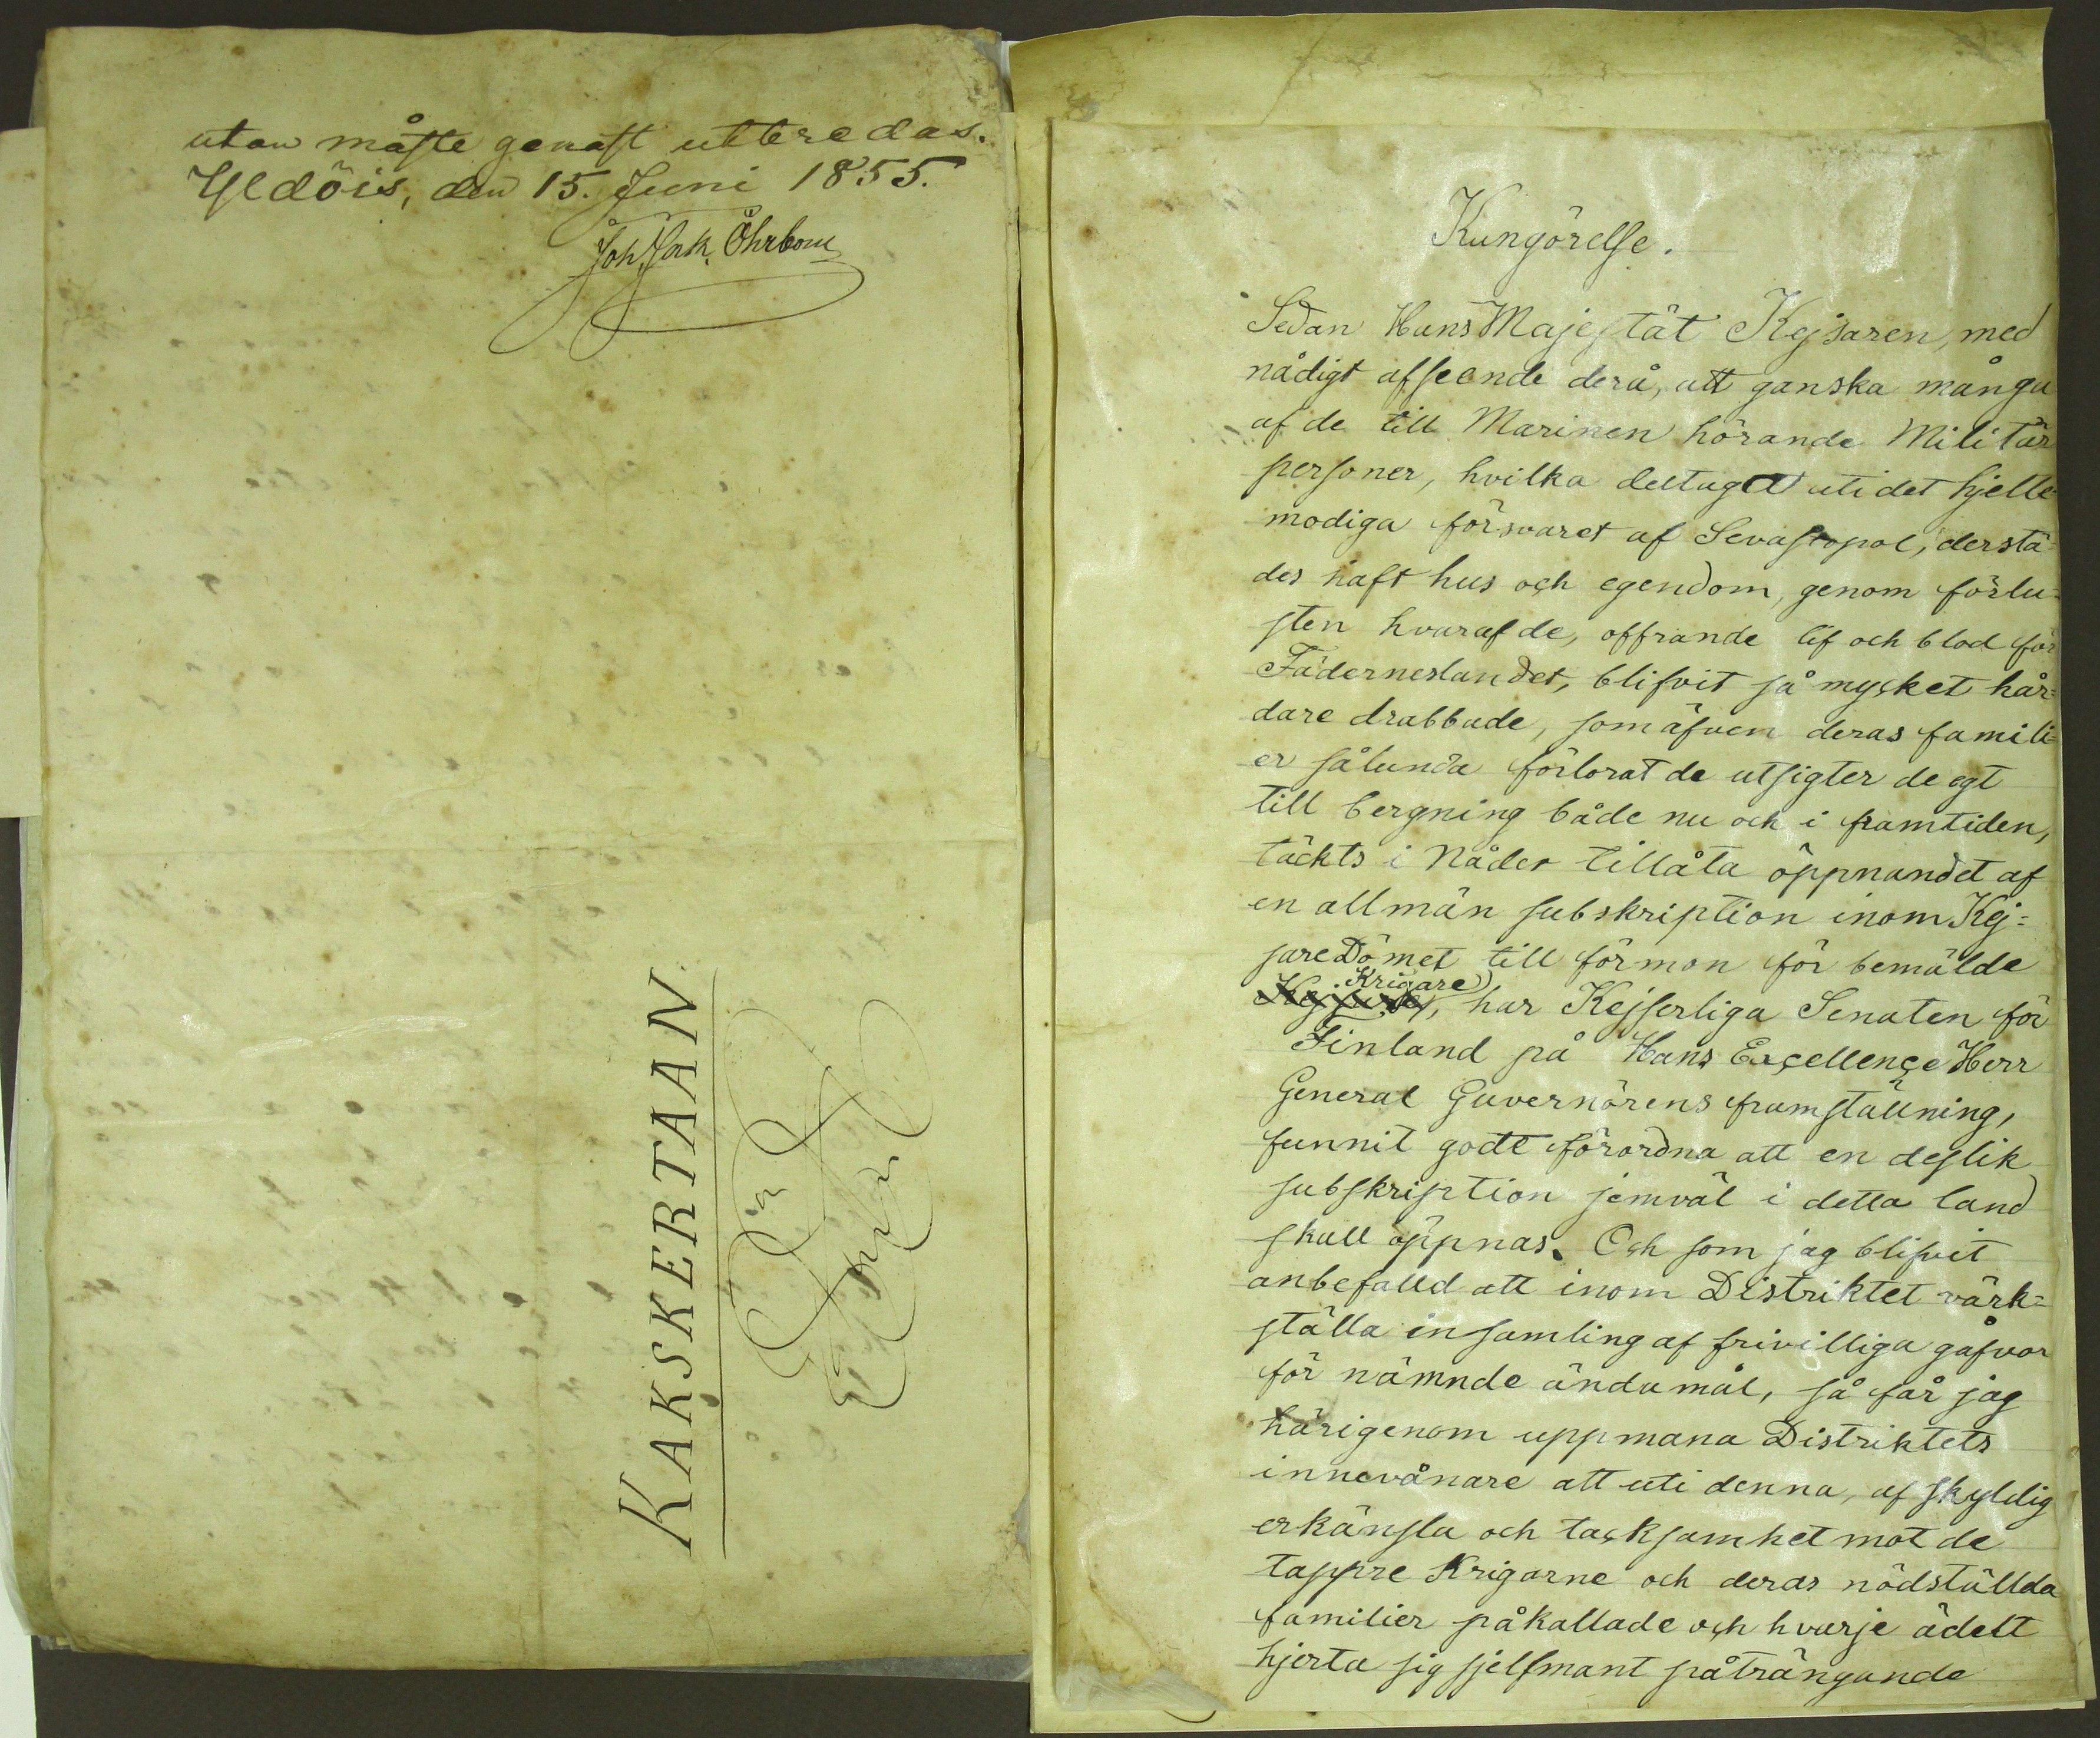 utan måste genast uttredas.
Yldöis, den 15. Juni 1855.
Joh. Jak. Öhrbom
KAKSKERTAAN
Kungörelse.
Sedan Hans Majestät Kejsaren, med
nådigt afseende derå, att ganska många
af de till Marinen hörande Militär
personer, hvilka deltagit uti det hjelte
modiga försvaret af Sevastopol, derstä=
des haft hus och egendom, genom förlu=
sten hvaraf de, offrande lif och blod för
Fäderneslandet, blifvit så mycket hår=
dare drabbade, som äfven deras famili=
er sålunda förlorat de utsigter de egt
till bergning både nu och i framtiden,
täckts i Nåder tillåta öppnandet af
en allmän subskription inom Kej=
sareDömet till förmon för bemälde
Krigare
, har Kejserliga Senaten för
Finland på Hans Excellence Herr
General Guvernörens framställning,
funnit godt förordna att en deslik
subskription jemväl i detta land
skull öppnas. Och som jag blifvit
anbefalld att inom Distriktet värk=
ställa insamling af frivilliga gåfvor
för nämnde ändamål, så får jag
härigenom uppmana Distriktets
innevånare att uti denna, af skyldig
erkänsla och tacksamhet mot de
tappre Krigarne och deras nödställda
familier påkallade och hvarje ädelt
hjerta sig sjelfmant påträngande